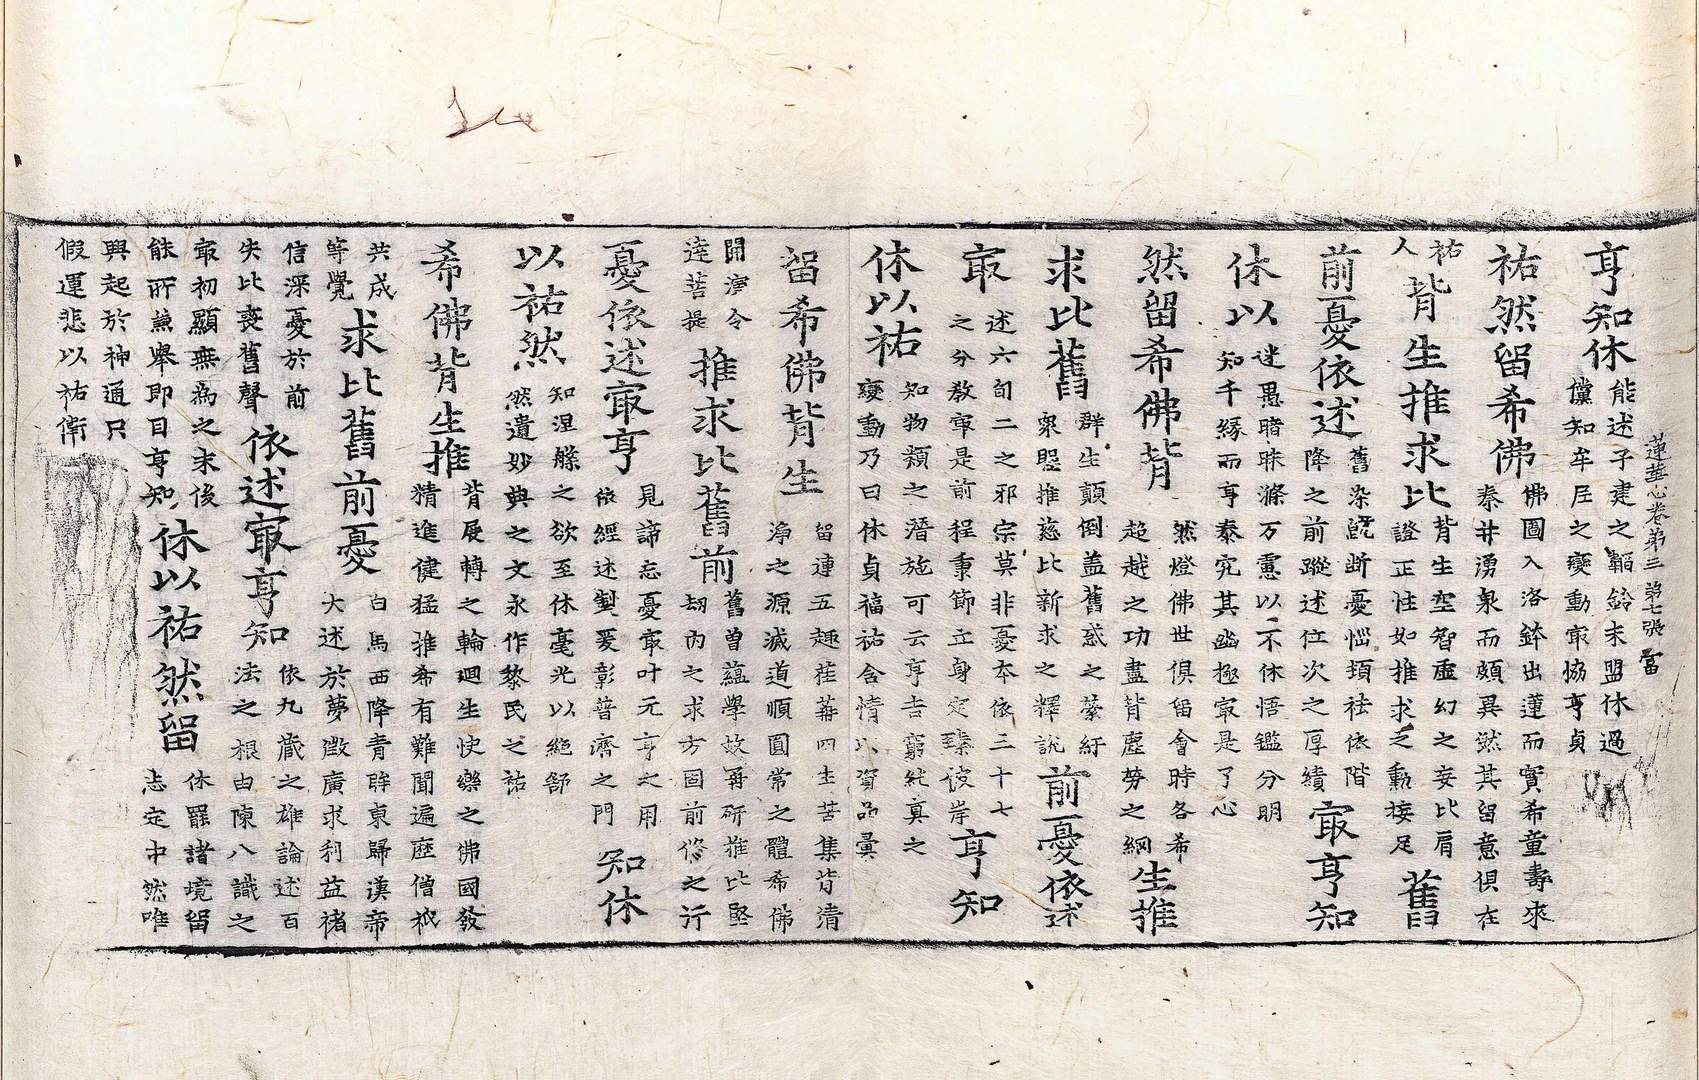 蓮華心卷第三 第七張 當
亨知休
能述子建之軀鈴未盟休過
儻知牟尼之變動㝡協亨貞
祐然留希佛
佛圖入洛鉢出蓮而實希童壽來
秦井湧泉而頗異然其留意俱在
祐
人
背生推求比
背生空智虛幻之妄比肩
證正性如推求之勳接足
舊
前憂依述
舊染旣断憂惱頊祛依階
降之前蹤述位次之厚績
㝡亨知
休以
迷愚暗昧滌万慮以不休悟鑑分明
知千緣而亨泰究其幽極㝡是了心
然留希佛背
然燈佛世俱留會時各希
超越之功盡背塵勞之綱
生推
求比舊
群生顛倒盖舊惑之縈紆
衆聖推慈比新求之釋說
前憂依述
㝡
述六旬二之邪宗莫非憂本依三十七
之分教㝡是前程秉節立身定臻彼岸
亨知
休以祐
知物類之潛施可云亨吉窮純真之
變動乃曰休貞福祐含情以資品彙
留希佛背生
留連五趣荏苒四生苦集背清
淨之源滅道順圓常之體希佛
開演令
逹菩提
推求比舊前
舊曽蘊學故再研推比堅
刧内之求方固前修之行
憂依述㝡亨
見諦忘憂㝡叶元亨之用
依經述製爰彰普濟之門
知休
以祐然
知涅槃之欲至休毫光以絶舒
然遺妙典之文永作黎民之祜
希佛背生推
背展轉之輪廻生快樂之佛國發
精進健猛推希有難聞遍歴僧祇
共成
等覺
求比舊前憂
白馬西降青眸東歸漢帝
大述於夢徵廣求利益禇
信深憂於前
失比喪舊聲
依述㝡亨知
依九嵗之雄論述百
法之根由陳八識之
㝡初顯無為之末後
能所兼舉即目亨知
休以祐然留
休罷諸境留
志定中然唯
興起於神通只
假運悲以祐衛